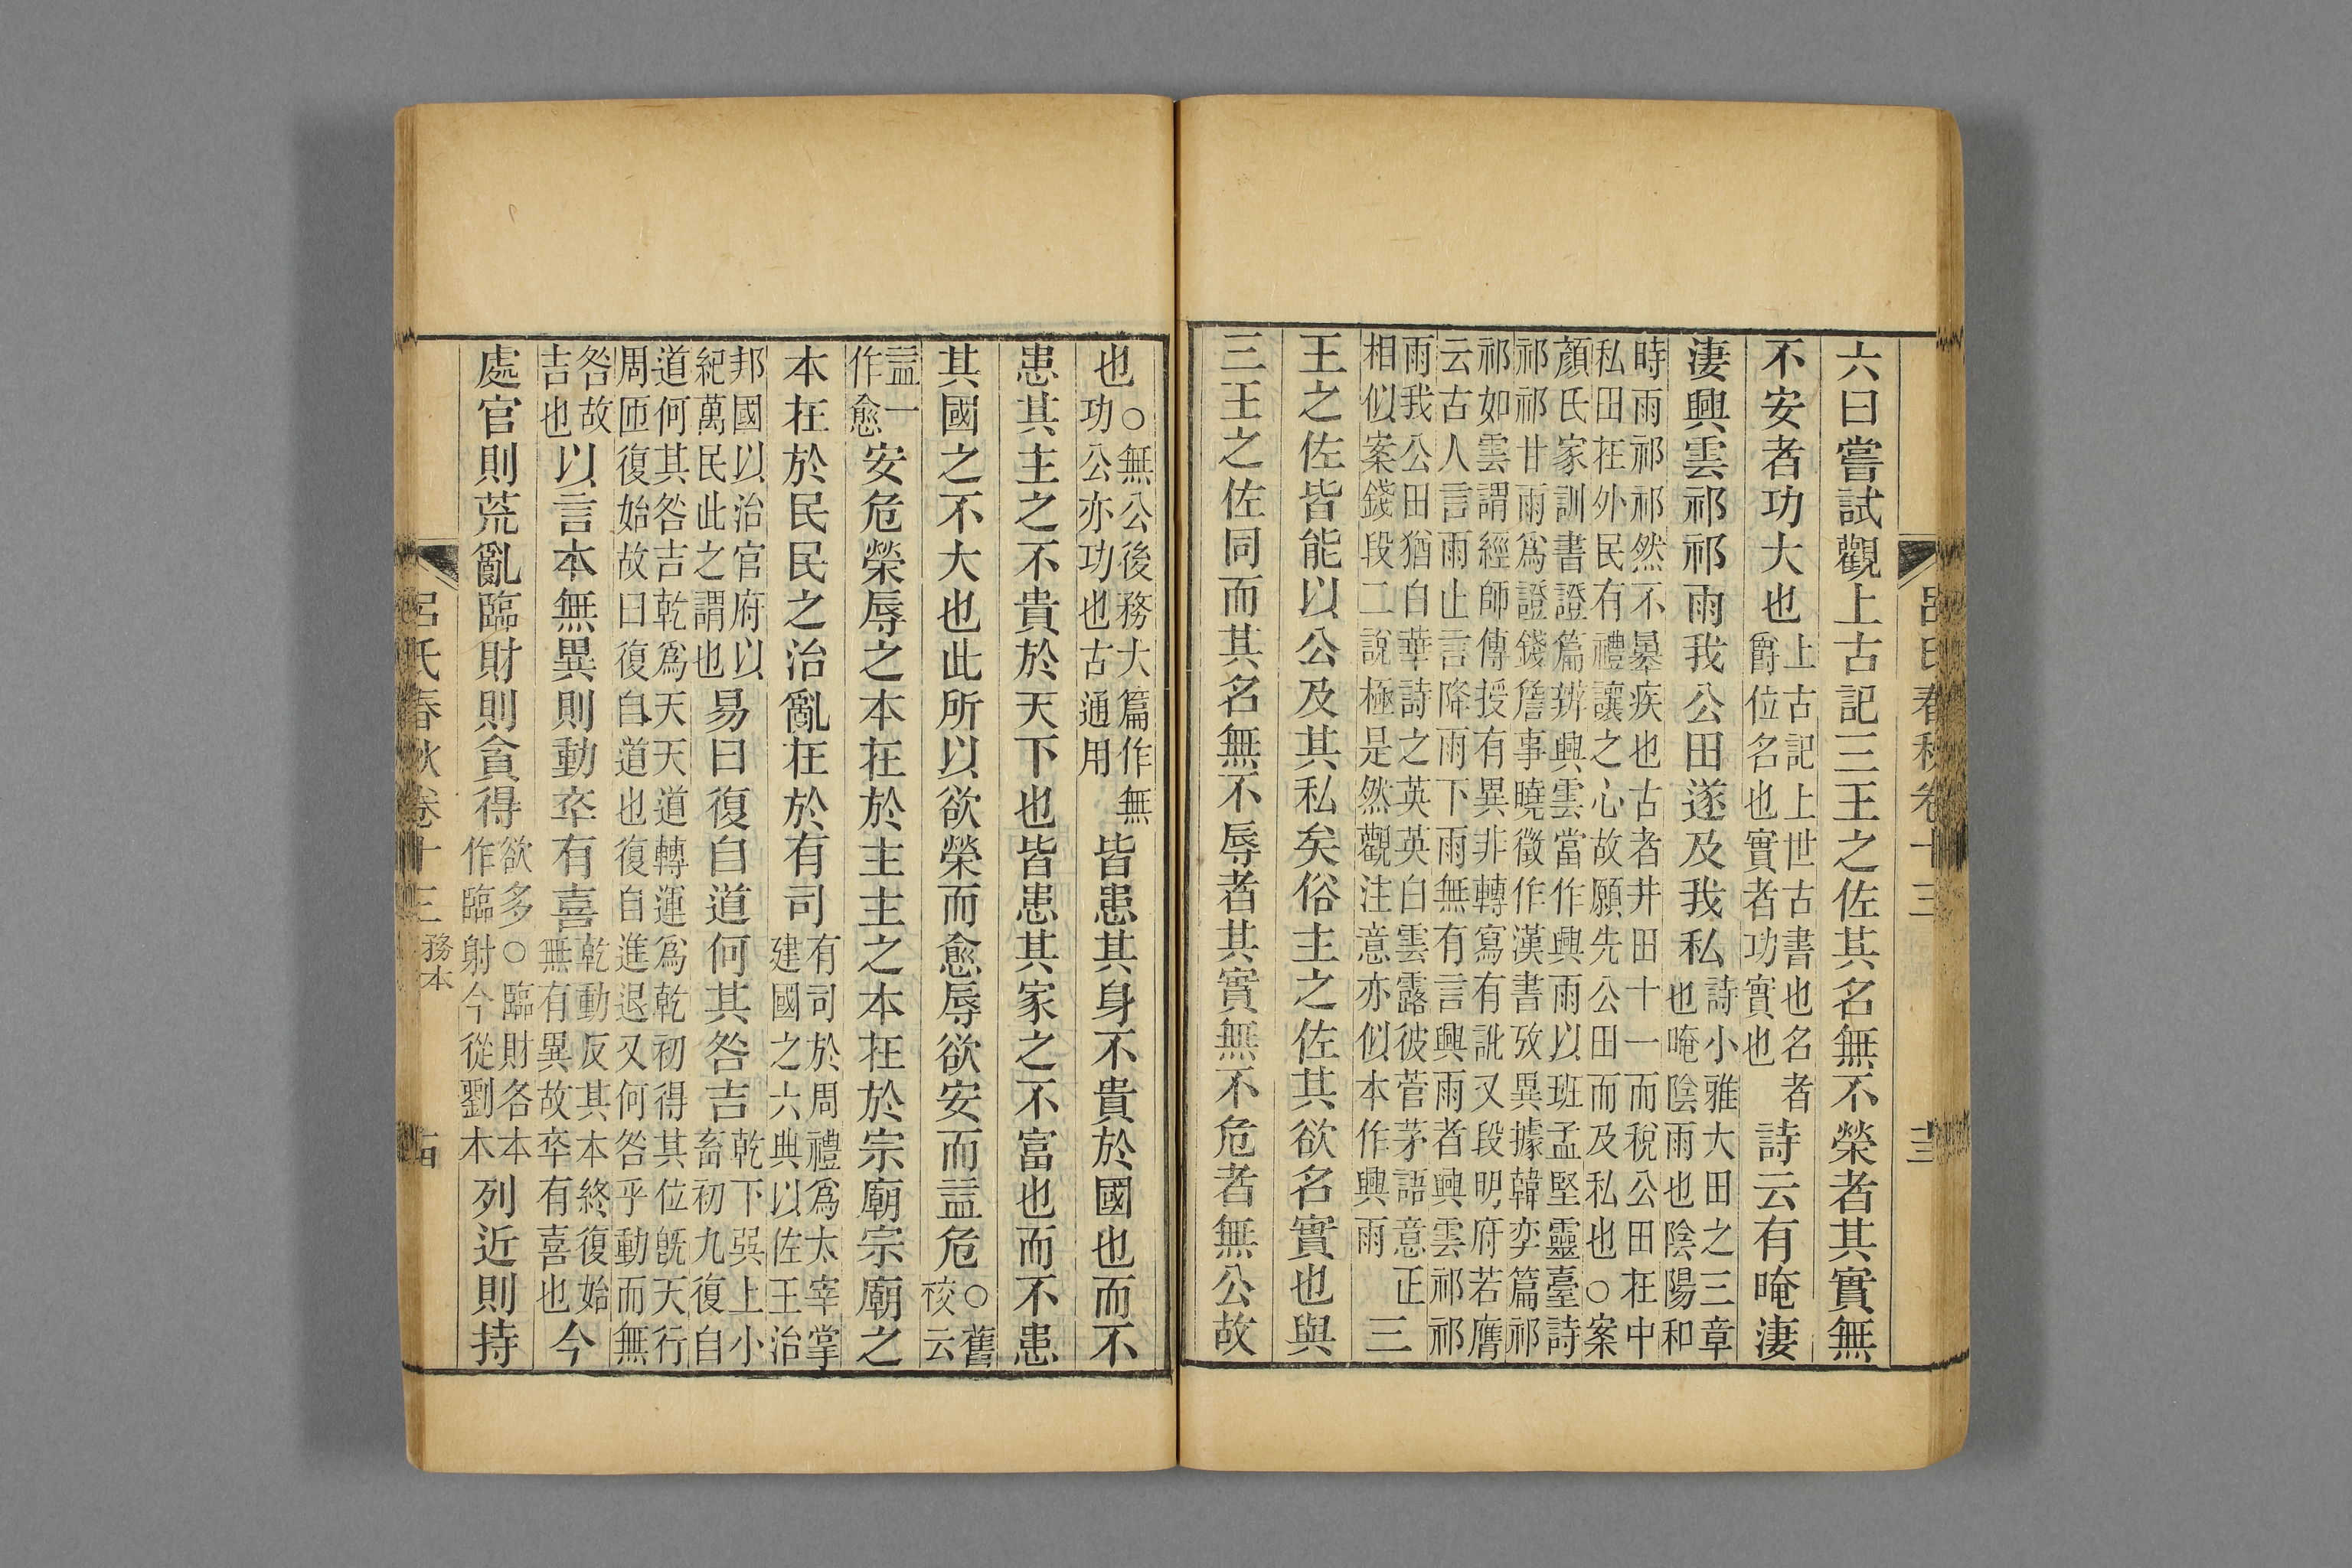 呂氏春秋卷十三
六曰嘗試觀上古記三王之佐其名無不榮者其實無
不安者功大也上古記上世古書也名者爵位名也實者功實也詩云有晻淒
淒興雲祁祁雨我公田遂及我私詩小雅大田之三章也晻陰雨也陰陽和
時雨祁祁然不暴疾也古者井田十一而稅公田在中
私田在外民有禮讓之心故願先公田而及私也○案
顏氏家訓書證篇辨興雲當作興雨以班孟堅靈臺詩
祁祁甘雨爲證錢詹事曉徵作漢書攷異據韓奕篇祁
祁如雲謂經師傳授有異非轉寫有訛又段明府若膺
云古人言雨止言降雨下雨無有言興雨者興雲祁祁
雨我公田猶白華詩之英英白雲露彼菅茅語意正
相似案錢段二說極是然觀注意亦似本作興雨三
王之佐皆能以公及其私矣俗主之佐其欲名實也與
三王之佐同而其名無不辱者其實無不危者無公故
也○無公後務大篇作無功公亦功也古通用皆患其身不貴於國也而不
患其主之不貴於天下也皆患其家之不富也而不患
其國之不大也此所以欲榮而愈辱欲安而益危○舊校云
益一作愈安危榮辱之本在於主主之本在於宗廟宗廟之
本在於民民之治亂在於有司有司於周禮爲太宰掌建國之六典以佐王治
邦國以治官府以紀萬民此之謂也易曰復自道何其咎吉乾下巽上小畜初九復自
道何其咎吉乾爲天天道轉運爲乾初得其位旣天行
周匝復始故曰復自道也復自進退又何咎乎動而無
咎故吉也以言本無異則動卒有喜乾動反其本終復始無有異故卒有喜也今
處官則荒亂臨財則貪得欲多○臨財各本作臨射今從劉本列近則持
呂氏春秋卷十三 務本